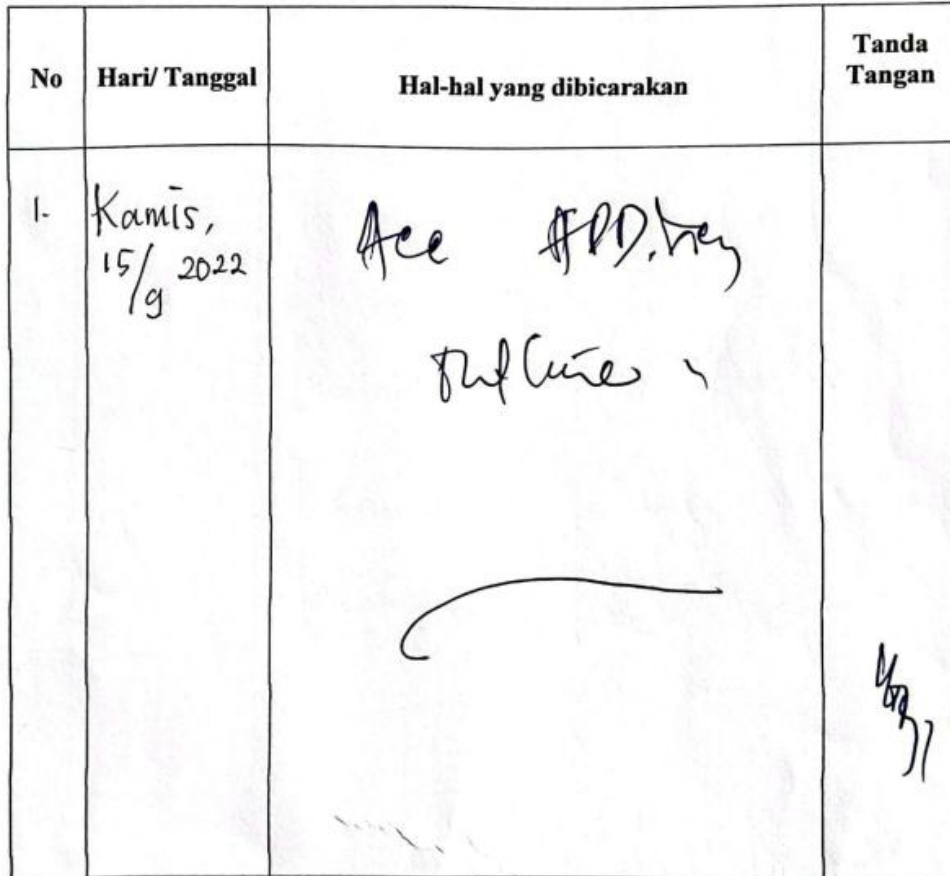 No Hari/ Tanggal Hal-hal yang dibicarakan Tanda Tangan
1. Kamis, Acc APD.
15/9 2022